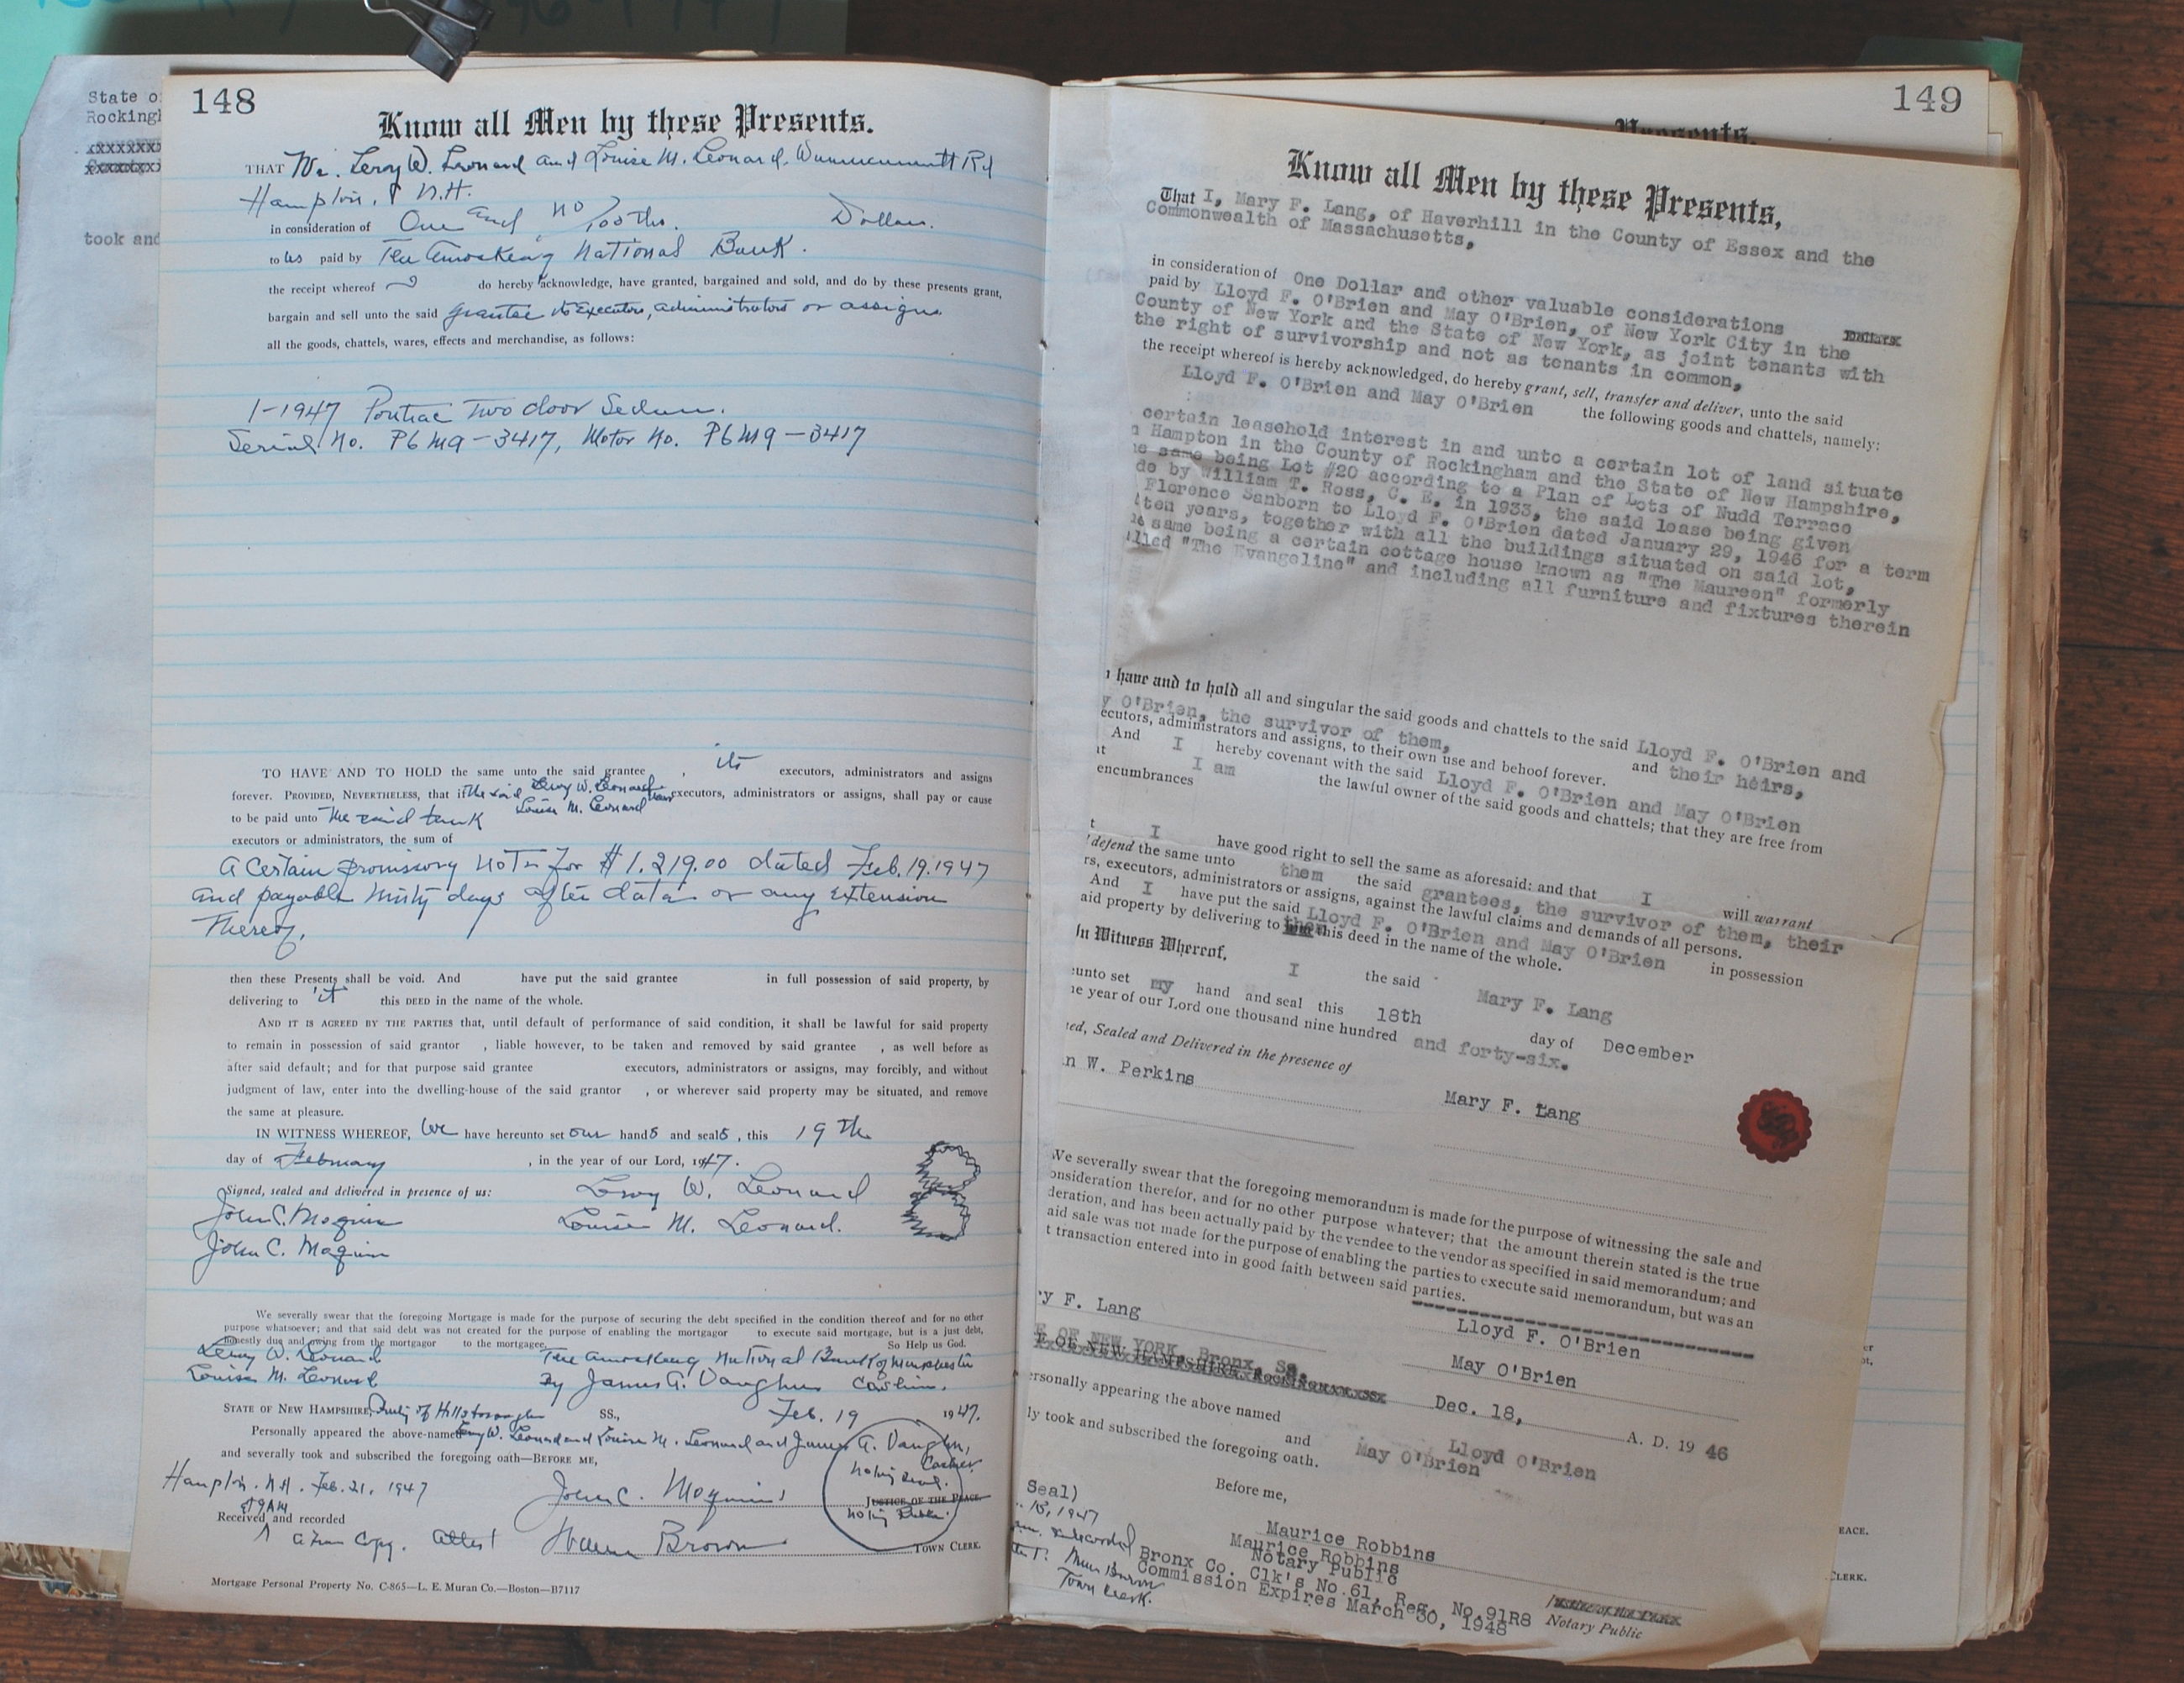 State o
Rockingh
xxxxxxx
took and
148
Know all Men by these Presents.
THAT We. Leroy W. Leonard and Louise M. Leonard. Rd
Hampton, N.H.
in consideration of One and no/100ths. Dollars.
to us paid by The Amoskeag National Bank.
the receipt whereof do hereby acknowledge, have granted, bargained and sold, and do by these presents grant,
bargain and sell unto the said grantee its Executors, administrators or assigns
all the goods, chattels, wares, effects and merchandise, as follows:
1-1947 Pontiac Two door Sedan.
Serial No. P6MA-3417, Motor No. P6MA-3417
TO HAVE AND TO HOLD the same unto the said grantee , its executors, administrators and assigns
forever. PROVIDED, NEVERTHELESS, that if the said Leroy W. Leonard executors, administrators or assigns, shall pay or cause
to be paid unto the said bank Louise M. Leonard
executors or administrators, the sum of
A Certain promissory note for $1,219.00 dated Feb. 19, 1947
and payable ninety days after date or any extension
Thereof.
then these Presents shall be void. And have put the said grantee in full possession of said property, by
delivering to it this DEED in the name of the whole.
AND IT IS AGREED BY THE PARTIES that, until default of performance of said condition, it shall be lawful for said property
to remain in possession of said grantor , liable however, to be taken and removed by said grantee , as well before as
after said default; and for that purpose said grantee executors, administrators or assigns, may forcibly, and without
judgment of law, enter into the dwelling-house of the said grantor , or wherever said property may be situated, and remove
the same at pleasure.
IN WITNESS WHEREOF, we have hereunto set our hands and seals, this 19th
day of February , in the year of our Lord, 1947.
Signed, sealed and delivered in presence of us: Leroy W. Leonard
John C. Moquin Louise M. Leonard.
John C. Moquin
We severally swear that the foregoing Mortgage is made for the purpose of securing the debt specified in the condition thereof and for no other
purpose whatsoever; and that said debt was not created for the purpose of enabling the mortgagor to execute said mortgage, but is a just debt,
honestly due and owing from the mortgagor to the mortgagee. So Help us God.
Leroy W. Leonard The Amoskeag National Bank of Manchester
Louise M. Leonard By James A. Vaughn Cashier.
STATE OF NEW HAMPSHIRE, County of Hillsborough SS., Feb. 19 1947.
Personally appeared the above-named Leroy W. Leonard and Louise M. Leonard and James A. Vaughn,
Cashier
and severally took and subscribed the foregoing oath—BEFORE ME,
Notary Seal.
Hampton. N.H. Feb. 21, 1947 John C. Moquin JUSTICE OF THE PEACE.
at 9 AM Notary Public.
Received and recorded
A true Copy. Attest Brown TOWN CLERK.
Mortgage Personal Property No. C-865—L. E. Muran Co.—Boston—B7117
149
Presents.
Know all Men by these Presents,
That I, Mary F. Lang, of Haverhill in the County of Essex and the
Commonwealth of Massachusetts,
in consideration of One Dollar and other valuable considerations Dollars
paid by Lloyd F. O'Brien and May O'Brien, of New York City in the
County of New York and the State of New York, as joint tenants with
the right of survivorship and not as tenants in common,
the receipt whereof is hereby acknowledged, do hereby grant, sell, transfer and deliver, unto the said
Lloyd F. O'Brien and May O'Brien the following goods and chattels, namely:
certain leasehold interest in and unto a certain lot of land situate
n Hampton in the County of Rockingham and the State of New Hampshire,
he same being Lot #20 according to a Plan of Lots of Nudd Terrace
de by William T. Ross, C. E. in 1933, the said lease being given
Florence Sanborn to Lloyd F. O'Brien dated January 29, 1946 for a term
ten years, together with all the buildings situated on said lot,
he same being a certain cottage house known as "The Maureen" formerly
lled "The Evangeline" and including all furniture and fixtures therein
have and to hold all and singular the said goods and chattels to the said Lloyd F. O'Brien and
y O'Brien, the survivor of them, and their heirs,
ecutors, administrators and assigns, to their own use and behoof forever.
And I hereby covenant with the said Lloyd F. O'Brien and May O'Brien
at I am the lawful owner of the said goods and chattels; that they are free from
encumbrances
t I have good right to sell the same as aforesaid: and that I will warrant
defend the same unto them the said grantees, the survivor of them, their
rs, executors, administrators or assigns, against the lawful claims and demands of all persons.
And I have put the said Lloyd F. O'Brien and May O'Brien in possession
aid property by delivering to them this deed in the name of the whole.
In Witness Whereof, I the said Mary F. Lang
eunto set my hand and seal this 18th day of December
he year of our Lord one thousand nine hundred and forty-six.
ned, Sealed and Delivered in the presence of
n W. Perkins Mary F. Lang
We severally swear that the foregoing memorandum is made for the purpose of witnessing the sale and
onsideration therefor, and for no other purpose whatever; that the amount therein stated is the true
deration, and has been actually paid by the vendee to the vendor as specified in said memorandum; and
aid sale was not made for the purpose of enabling the parties to execute said memorandum, but was an
t transaction entered into in good faith between said parties.
ry F. Lang Lloyd F. O'Brien
May O'Brien
E OF NEW YORK, Bronx, Ss.
E OF NEW HAMPSHIRE, ROCKINGHAM, SS. Dec. 18, A. D. 19 46
ersonally appearing the above named Lloyd O'Brien
and May O'Brien
ly took and subscribed the foregoing oath.
Before me,
Seal) Maurice Robbins
18, 1947 Maurice Robbins
Notary Public
Bronx Co. Clk's No.61, Reg. No.91R8
Commission Expires March 30, 1948
Town Clerk.
Notary Public
EACE.
CLERK.